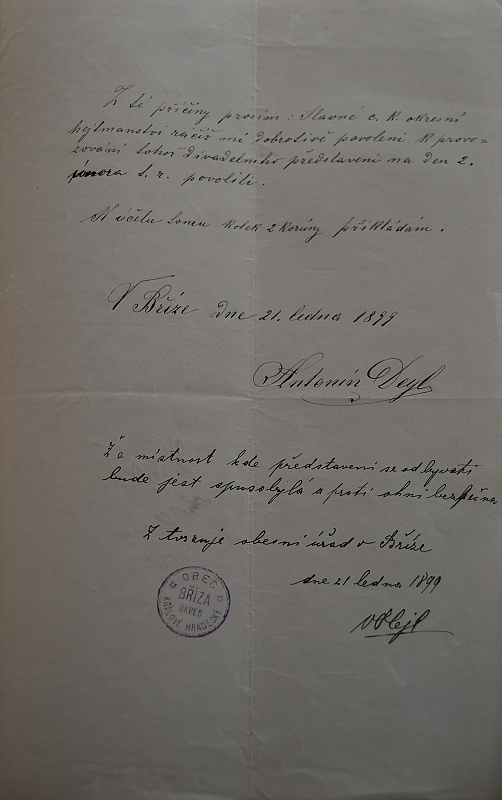 Z té příčiny prosím: Slavné c. k. okresní
hejtmanství ráčiž mi dobrotivě povolení k provo-
zování tohož divadelního představení na den 2.
února t. r. povoliti.
K účelu tomu kolek 2 koruny přikládám.
V Bříze dne 21. ledna 1899
Antonín Deyl
Že místnost kde představení se odbyvati
bude jest spusobylá a proti ohni bezpečna
Ztvrzuje obecní úřad v Bříze
dne 21 ledna 1899
OBEC
BŘÍZA
OKRES
KRÁLOVÉ HRADECKÝ